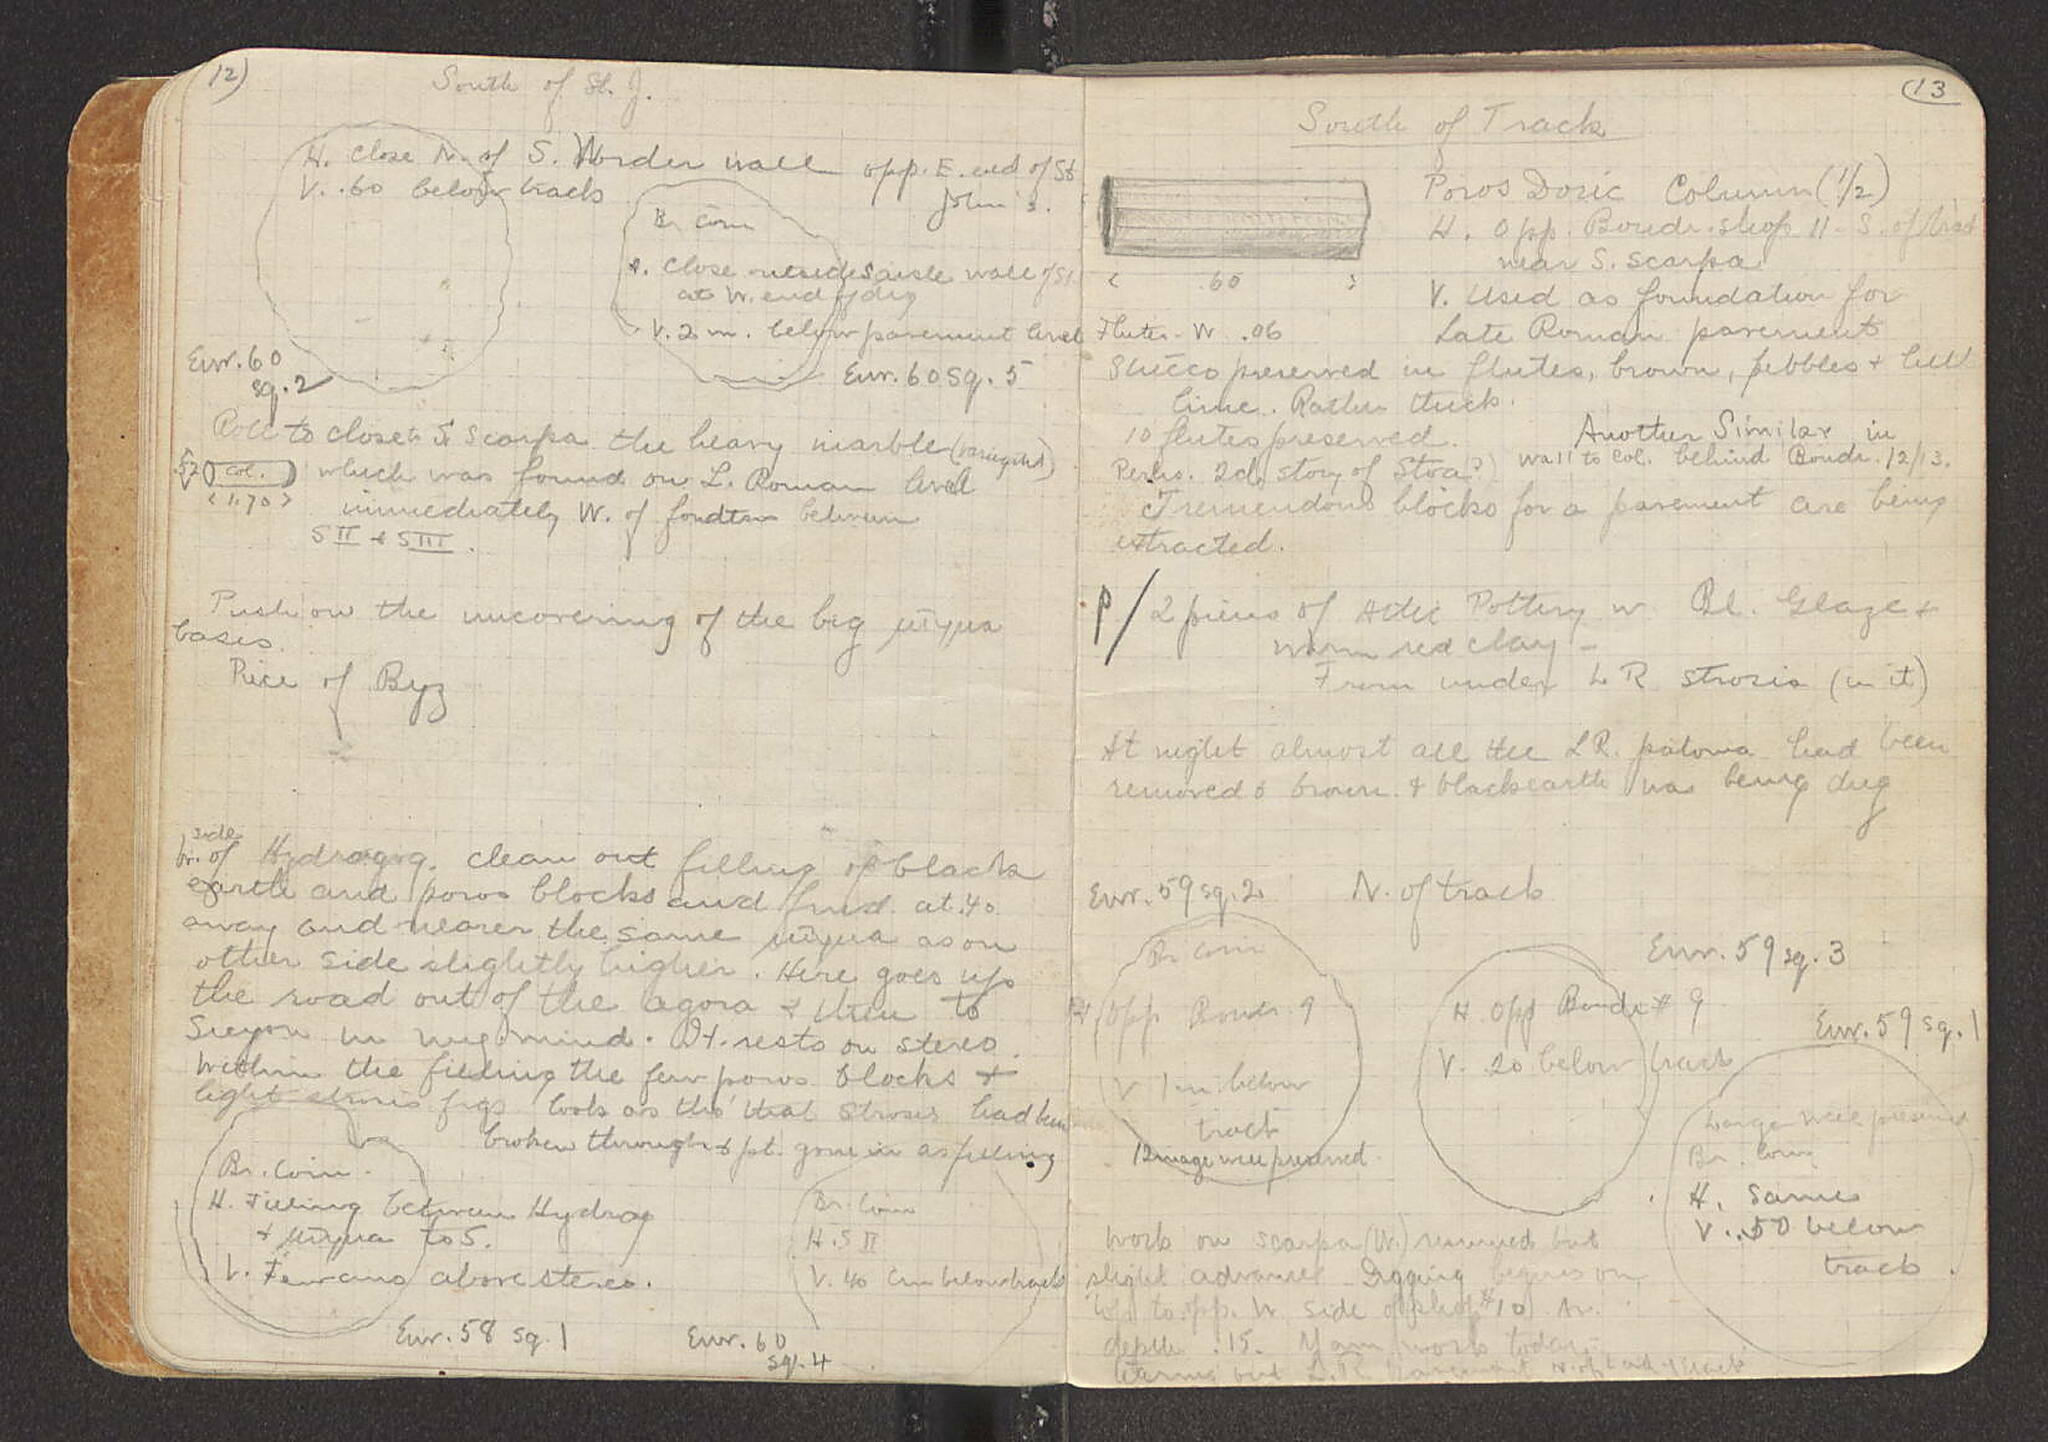 12)
South of St. J.
H. Close N. of S. border wall opp. E. end of St John's.
V. .60 below track
Br. Coin
H. Close outside S aisle wall of St.
at W. end of dig
V. 2 m. below pavement level
Env. 60
sq. 2
Env. 60 sq. 5
Roll to close to S scarpa the heavy marble (variegated)
.52 col. which was found on L. Roman level
<1.70> immediately W. of fondtn between
S II & S III.
Push on the uncovering of the big μνῆμα
bases.
Piece of Byz
side
br. of Hydragog. clean out filling of black
earth and poros blocks and find at .40
away and nearer the same μνῆμα as on
other side slightly higher. Here goes up
the road out of the agora & then to
Sicyon in my mind. It rests on stereo.
Within the filling the few poros blocks &
light strosis frgs look as tho' that strosis had been
broken through & pt. gone in as filling
Br. Coin.
H. Filling between Hydrag
& μνῆμα to S.
V. Few cms above stereo.
Env. 58 sq. 1
Br. Coin
H. S II
V. 40 cm below track
Env. 60
sq. 4
13
South of Track
Poros Doric Column (1/2)
H. Opp. Boudr. shop 11 - S. of track
near S. scarpa
V. Used as foundation for
Late Roman pavement
< .60 >
Flutes - W .06
Stucco preserved in flutes, brown, pebbles &
lime. Rather thick.
10 flutes preserved.
Another Similar in
wall to Col. behind Boudr. 12/13.
Perhs. 2d story of Stoa?)
Tremendous blocks for a pavement are being
extracted.
P / 2 pieces of Attic Pottery w. Bl. Glaze &
warm red clay -
From under L R strosis (in it)
At night almost all the L R. patoma had been
removed & brown & black earth was being dug
Env. 59 sq. 2
N. of track
Br Coin
H. opp Boudr. 9
V 1 m. below
track
Image well preserved.
Env. 59 sq. 3
H. Opp Boudr # 9
V. .20 below track
Env. 59 sq. 1
Image well preserved
Br. Coin
H. Same
V. .50 below
track.
Work on scarpa (W.) resumed but
slight advance. Digging begins on
top to opp. W side of shop #10 Av.
depth .15.